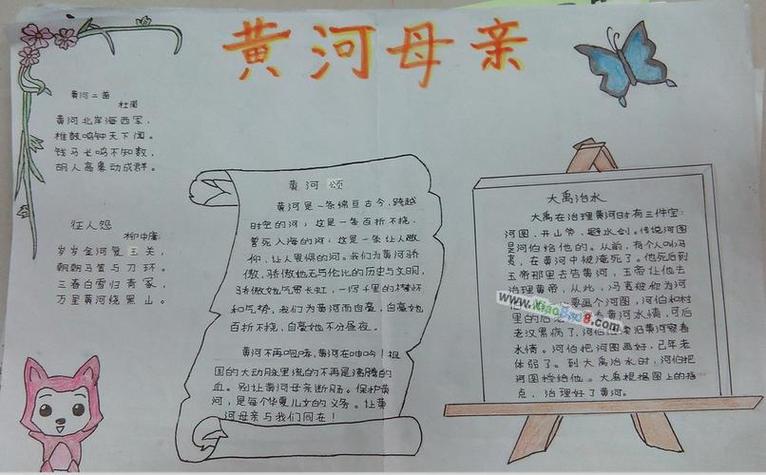 黄河母亲
黄河二首
杜甫
黄河北岸海西军，
椎鼓鸣钟天下闻。
铁马长鸣不知数，
胡人高鼻动成群。
征人怨
柳中庸
岁岁金河复玉关，
朝朝马策与刀环。
三春白雪归青冢，
万里黄河绕黑山。
黄河颂
黄河是一条绵亘古今，跨越
时空的河；这是一条百折不挠，
誓死入海的河；这是一条让人敬
仰，让人畏惧的河。我们为黄河骄
傲，骄傲她无与伦比的历史与文明，
骄傲她气贯长虹，一泻千里的襟怀
和气势。我们为黄河而自豪，自豪她
百折不挠，自豪她不分昼夜。
黄河不再咆哮，黄河在呻吟！祖
国的大动脉里流的不再是沸腾的
血。别让黄河母亲断肠。保护黄
河，是每个华夏儿女的义务。让黄
河母亲与我们同在！
大禹治水
大禹在治理黄河时有三件宝：
河图、开山斧、避水剑。传说河图
是河伯给他的。从前，有个人叫冯
夷，在黄河中被淹死了。他死后到
玉帝那里去告黄河，玉帝让他去
治理黄帝，从此，冯夷被称为河
要画个河图，河伯和村
里的后
看黄河水情，可后
老汉累病了，河伯
沿黄河察看
水情。河伯把河图画好，已年老
体弱了。到大禹治水时，河伯把
河图授给他。大禹根据图上的指
点，治理好了黄河。
www.XiaoBao8.com